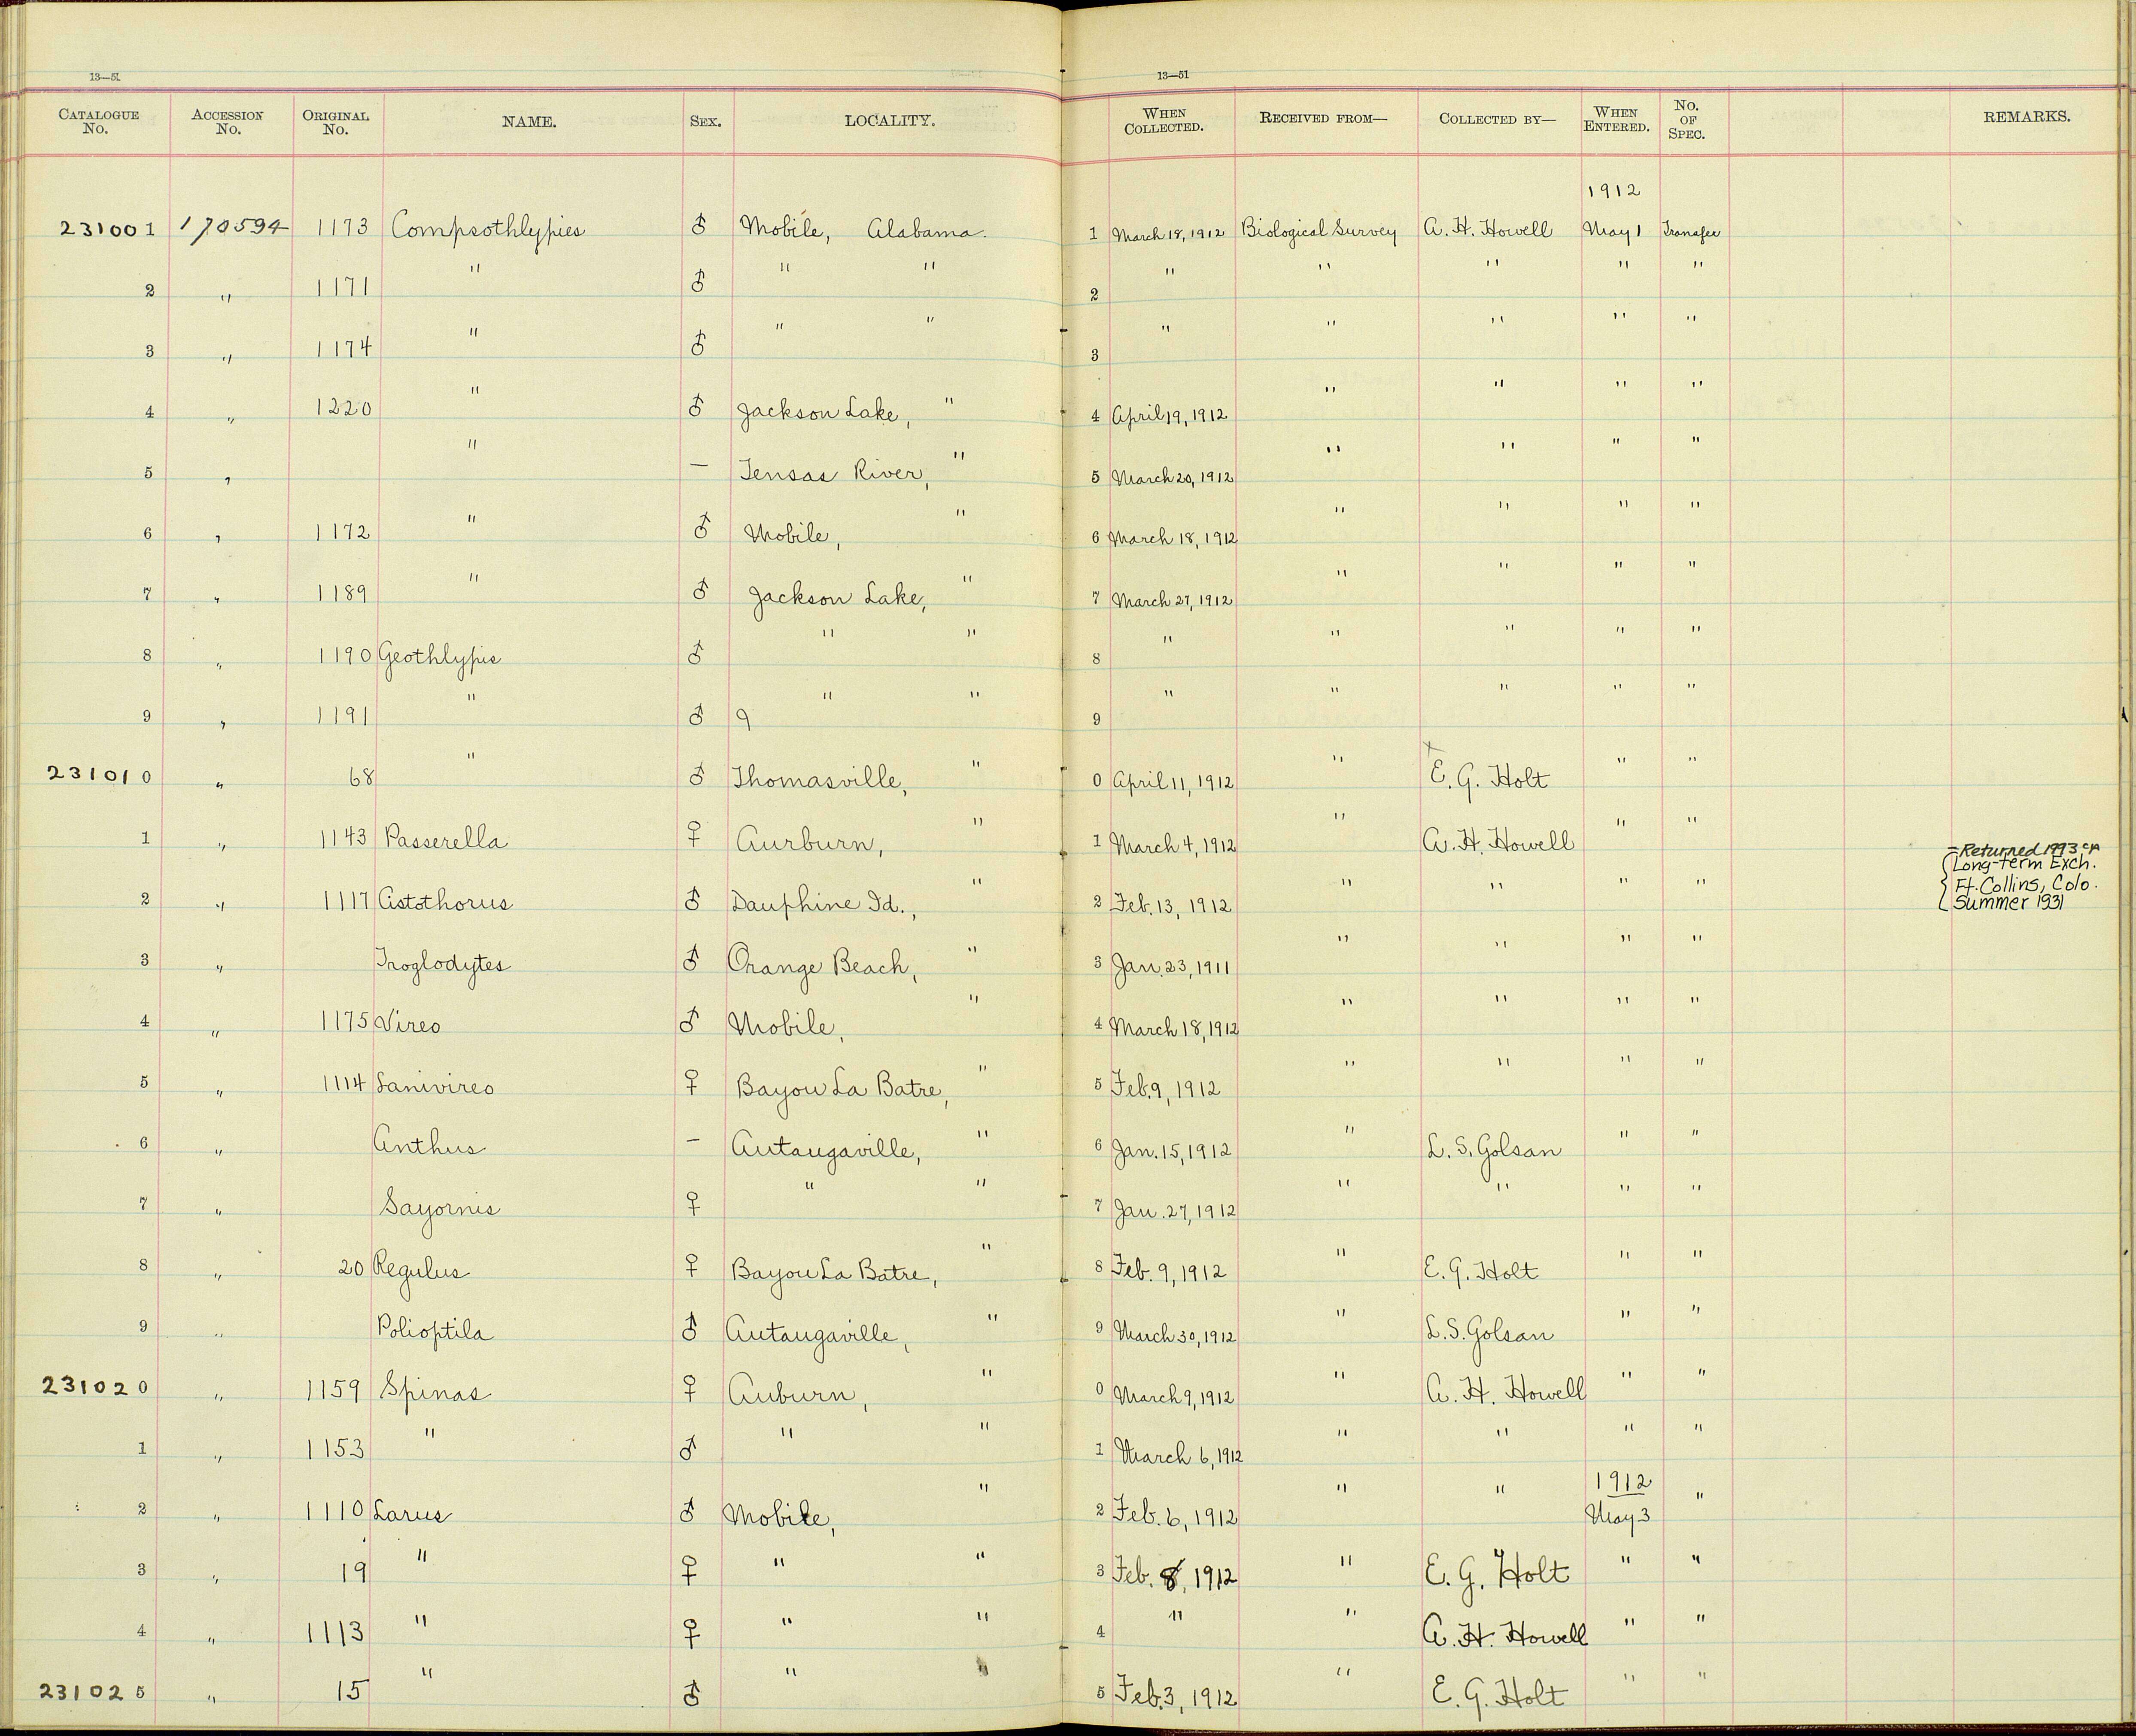 13—51
13—51
CATALOGUE No. ACCESSION No. ORIGINAL No. NAME. SEX. LOCALITY. WHEN COLLECTED. RECEIVED FROM— COLLECTED BY— WHEN ENTERED. No. OF SPEC. REMARKS.
1912
231001 170594 1173 Compsothlypies ♂ Mobile, Alabama. 1 March 18, 1912 Biological Survey A. H. Howell May 1 Transfer
2 " 1171 " ♂ " " 2 " " " " "
3 " 1174 " ♂ " " 3 " " " " "
4 " 1220 " ♂ Jackson Lake, " 4 April 19, 1912 " " " "
5 " " — Tensas River, " 5 March 20, 1912 " " " "
6 " 1172 " ♂ Mobile, " 6 March 18, 1912 " " " "
7 " 1189 " ♂ Jackson Lake, " 7 March 27, 1912 " " " "
8 " 1190 Geothlypis ♂ " " 8 " " " " "
9 " 1191 " ♂ 9 " " 9 " " " " "
231010 " 68 " ♂ Thomasville, " 0 April 11, 1912 " E. G. Holt " "
1 " 1143 Passerella ♀ Aurburn, " 1 March 4, 1912 " A. H. Howell " " = Returned 1993
Long-term Exch.
2 " 1117 Cistothorus ♂ Dauphine Id., " 2 Feb. 13, 1912 " " " " Ft. Collins, Colo.
Summer 1931
3 " Troglodytes ♂ Orange Beach, " 3 Jan. 23, 1911 " " " "
4 " 1175 Vireo ♂ Mobile, " 4 March 18, 1912 " " " "
5 " 1114 Lanivireo ♀ Bayou La Batre, " 5 Feb. 9, 1912 " " " "
6 " Anthus — Autaugaville, " 6 Jan. 15, 1912 " L. S. Golsan " "
7 " Sayornis ♀ " " 7 Jan. 27, 1912 " " " "
8 " 20 Regulus ♀ Bayou La Batre, " 8 Feb. 9, 1912 " E. G. Holt " "
9 " Polioptila ♂ Autaugaville, " 9 March 30, 1912 " L. S. Golsan " "
231020 " 1159 Spinas ♀ Auburn, " 0 March 9, 1912 " A. H. Howell " "
1 " 1153 " ♂ " " 1 March 6, 1912 " " " "
1912
2 " 1110 Larus ♂ Mobile, " 2 Feb. 6, 1912 " " May 3 "
3 " 19 " ♀ " " 3 Feb. 8, 1912 " E. G. Holt " "
4 " 1113 " ♀ " " 4 " " A. H. Howell " "
231025 " 15 " ♂ " " 5 Feb. 3, 1912 " E. G. Holt " "